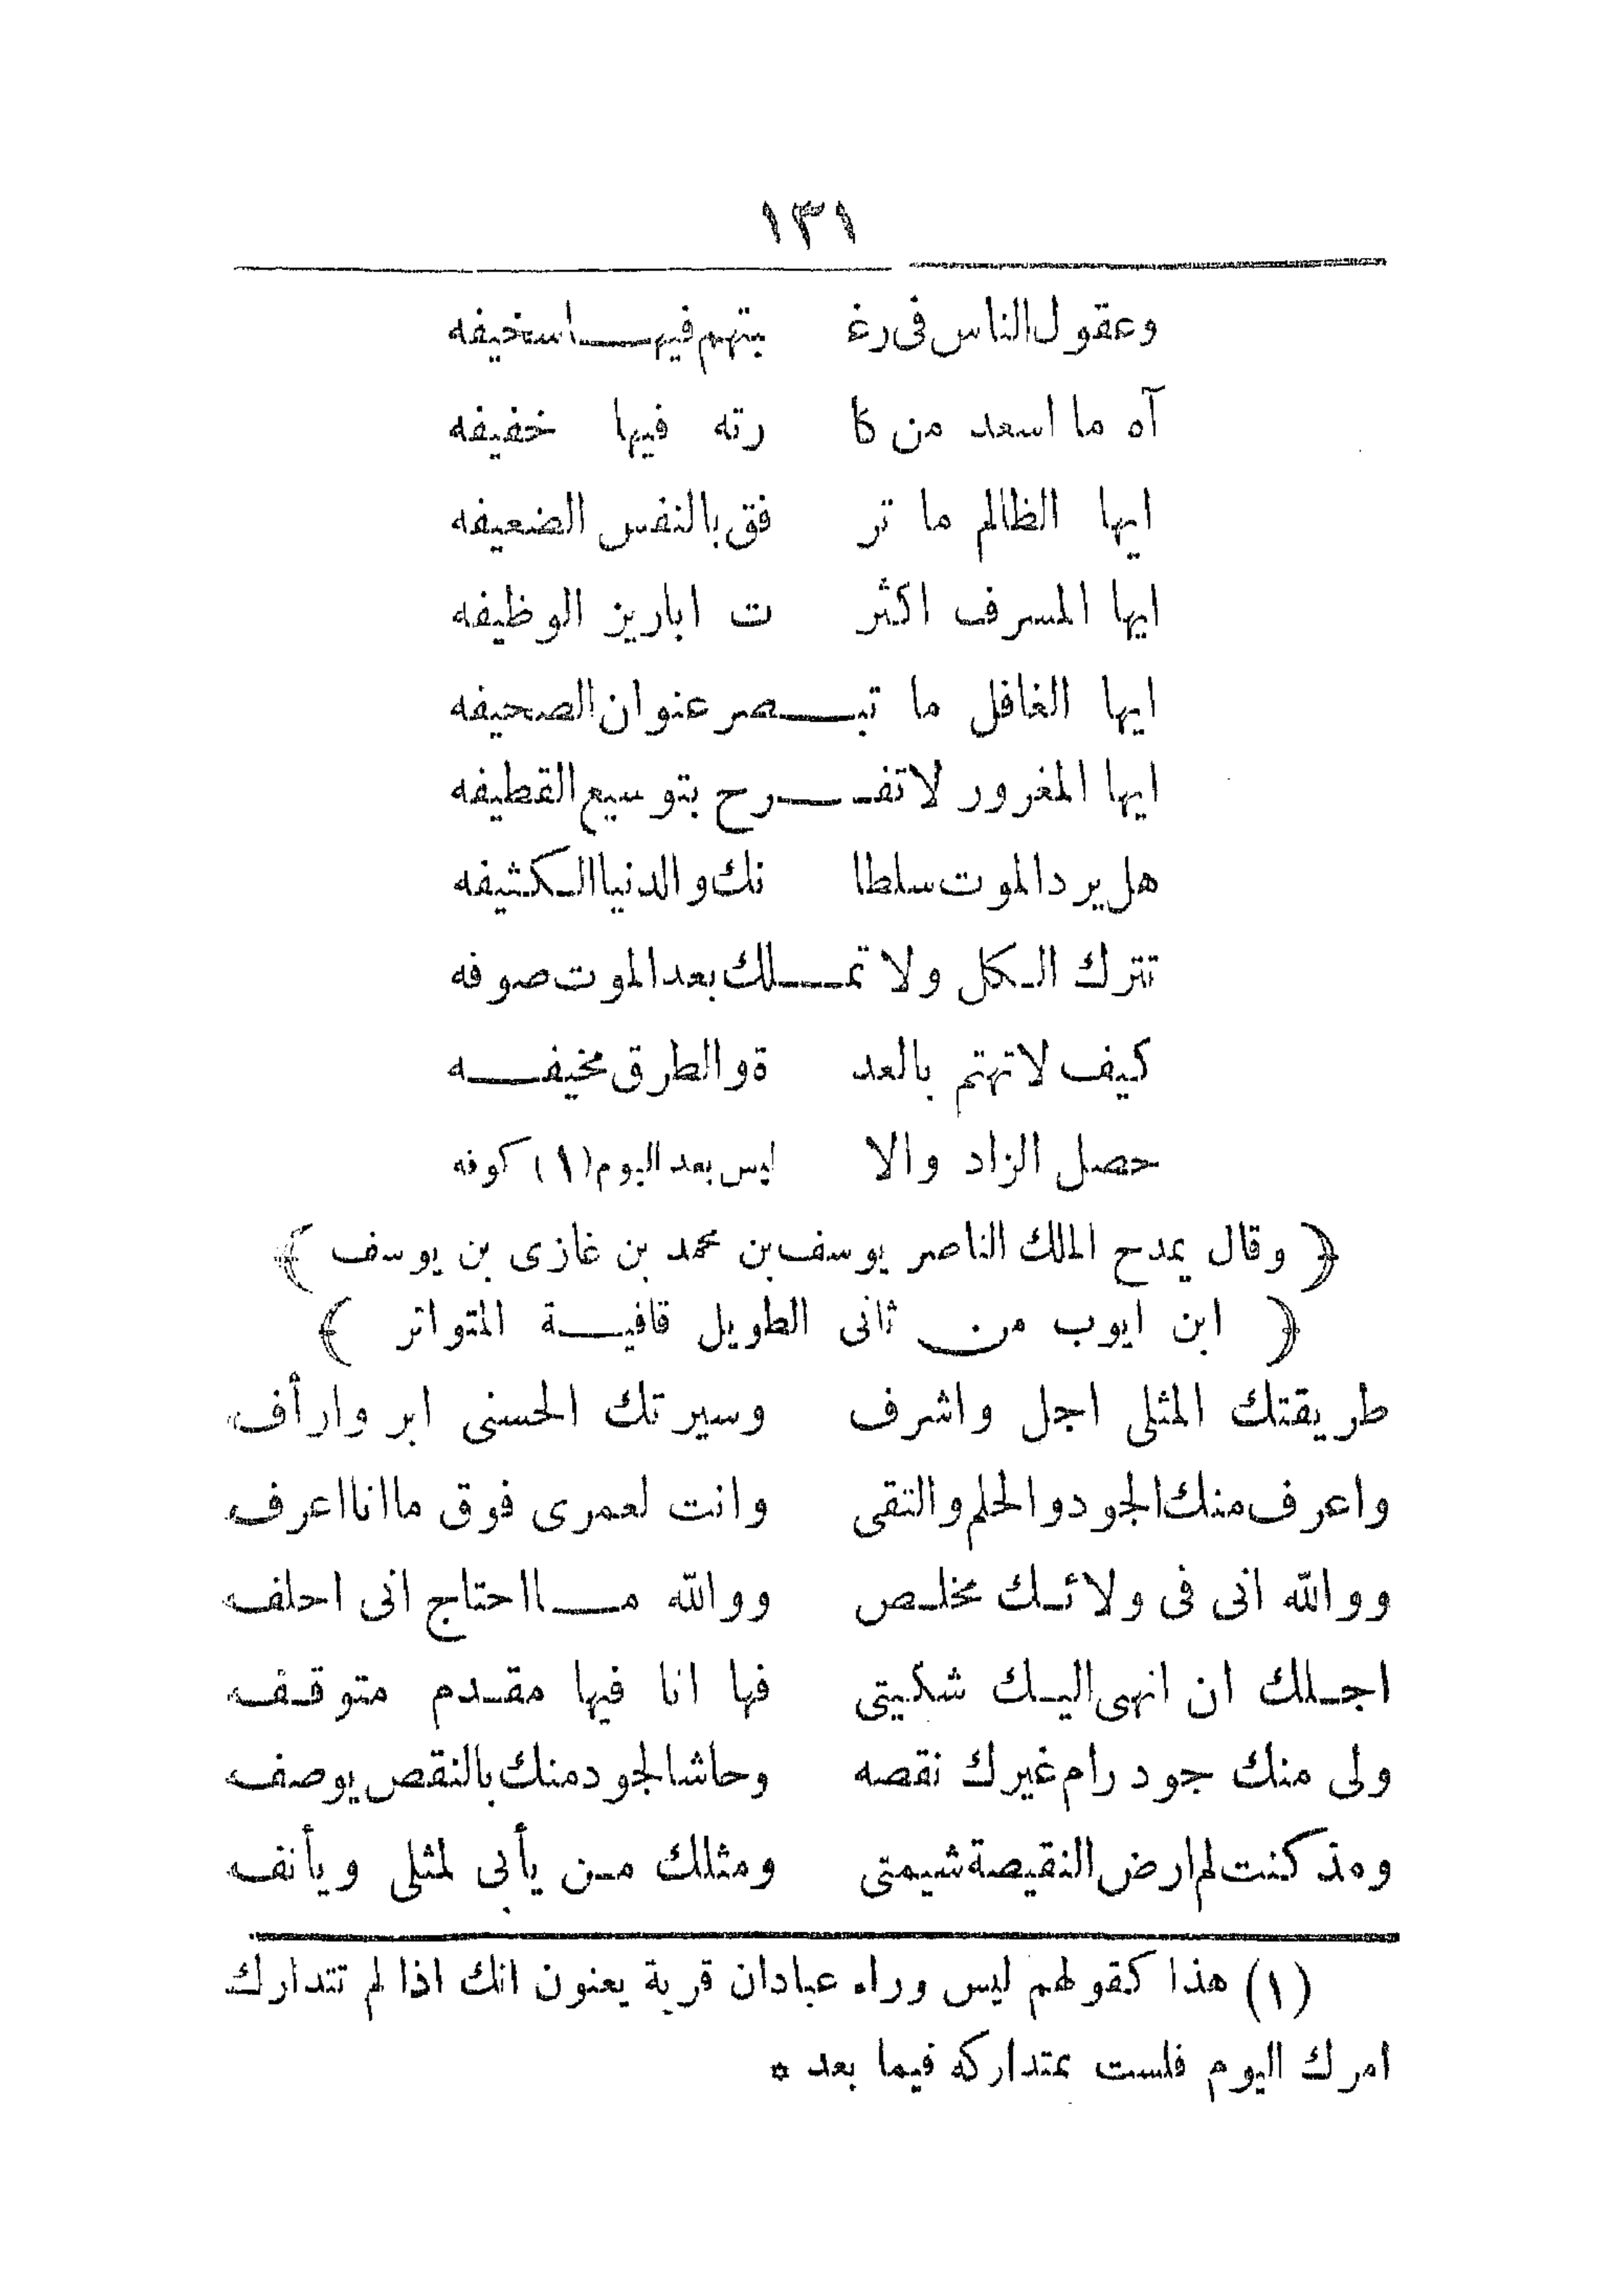 ١٣١
وعقول الناس فى رغ بتهم فيها سخيفه
آه ما اسعد من كا رته فيها خفيفه
ايها الظالم ما تر فق بالنفس الضعيفه
ايها المسرف اكثر ت اباريز الوظيفه
ايها الغافل ما تبـصر عنوان الصحيفه
ايها المغرور لا تفـرح بتوسيع القطيفه
هل يرد الموت سلطا نك والدنيا الكثيفه
تترك الكل ولا تمـلك بعد الموت صوفه
كيف لا تهتم بالعد ة والطرق مخيفه
حصل الزاد والا ليس بعد اليوم (١) كوفه
﴿ وقال يمدح الملك الناصر يوسف بن محمد بن غازى بن يوسف ﴾
﴿ ابن ايوب من ثانى الطويل قافية المتواتر ﴾
طريقتك المثلى اجل واشرف وسيرتك الحسنى ابر وارأف
واعرف منك الجود والحلم والتقى وانت لعمرى فوق ما انا اعرف
ووالله انى فى ولائك مخلص ووالله ما احتاج انى احلف
اجلك ان انهى اليك شكيتى فها انا فيها مقدم متوقف
ولى منك جود رام غيرك نقصه وحاشا لجود منك بالنقص يوصف
ومذ كنت لم ارض النقيصة شيمتى ومثلك من يأبى لمثلى ويأنف
(١) هذا كقولهم ليس وراء عبادان قرية يعنون انك اذا لم تتدارك
امرك اليوم فلست بمتداركه فيما بعد *